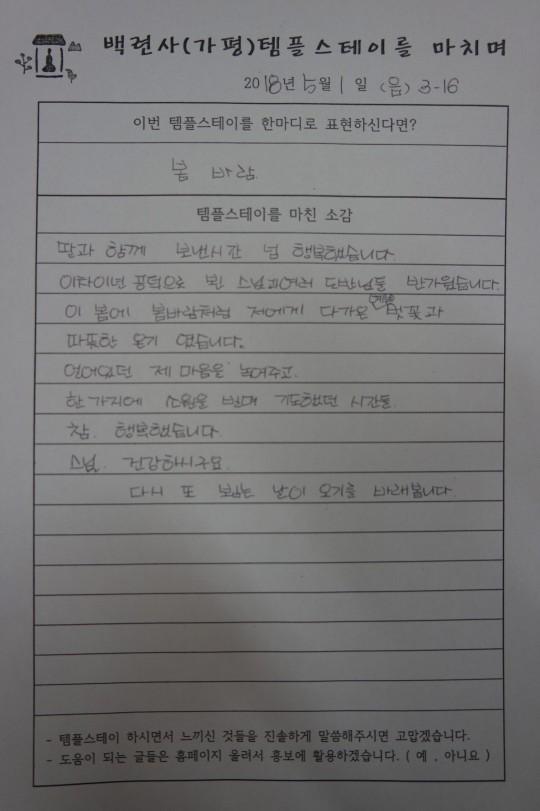 백련사(가평)템플스테이를 마치며
2018년 5월 1일 (음) 3-16
이번 템플스테이를 한마디로 표현하신다면?
봄 바람.
템플스테이를 마친 소감
딸과 함께 보낸시간 넘 행복했습니다.
공덕으로 뵌 스님과여러 도반님들 반가웠습니다.
이 봄에 봄바람처럼 저에게 다가온 벚꽃과
따뜻한 온기 였습니다.
얼어있던 제 마음을 녹여주고.
한 가지에 소원을 빌며 기도했던 시간들.
참. 행복했습니다.
스님. 건강하시구요.
다시 또 뵙는 날이 오기를 바래봅니다.
- 템플스테이 하시면서 느끼신 것들을 진솔하게 말씀해주시면 고맙겠습니다.
- 도움이 되는 글들은 홈페이지 올려서 홍보에 활용하겠습니다. ( 예 , 아니요 )